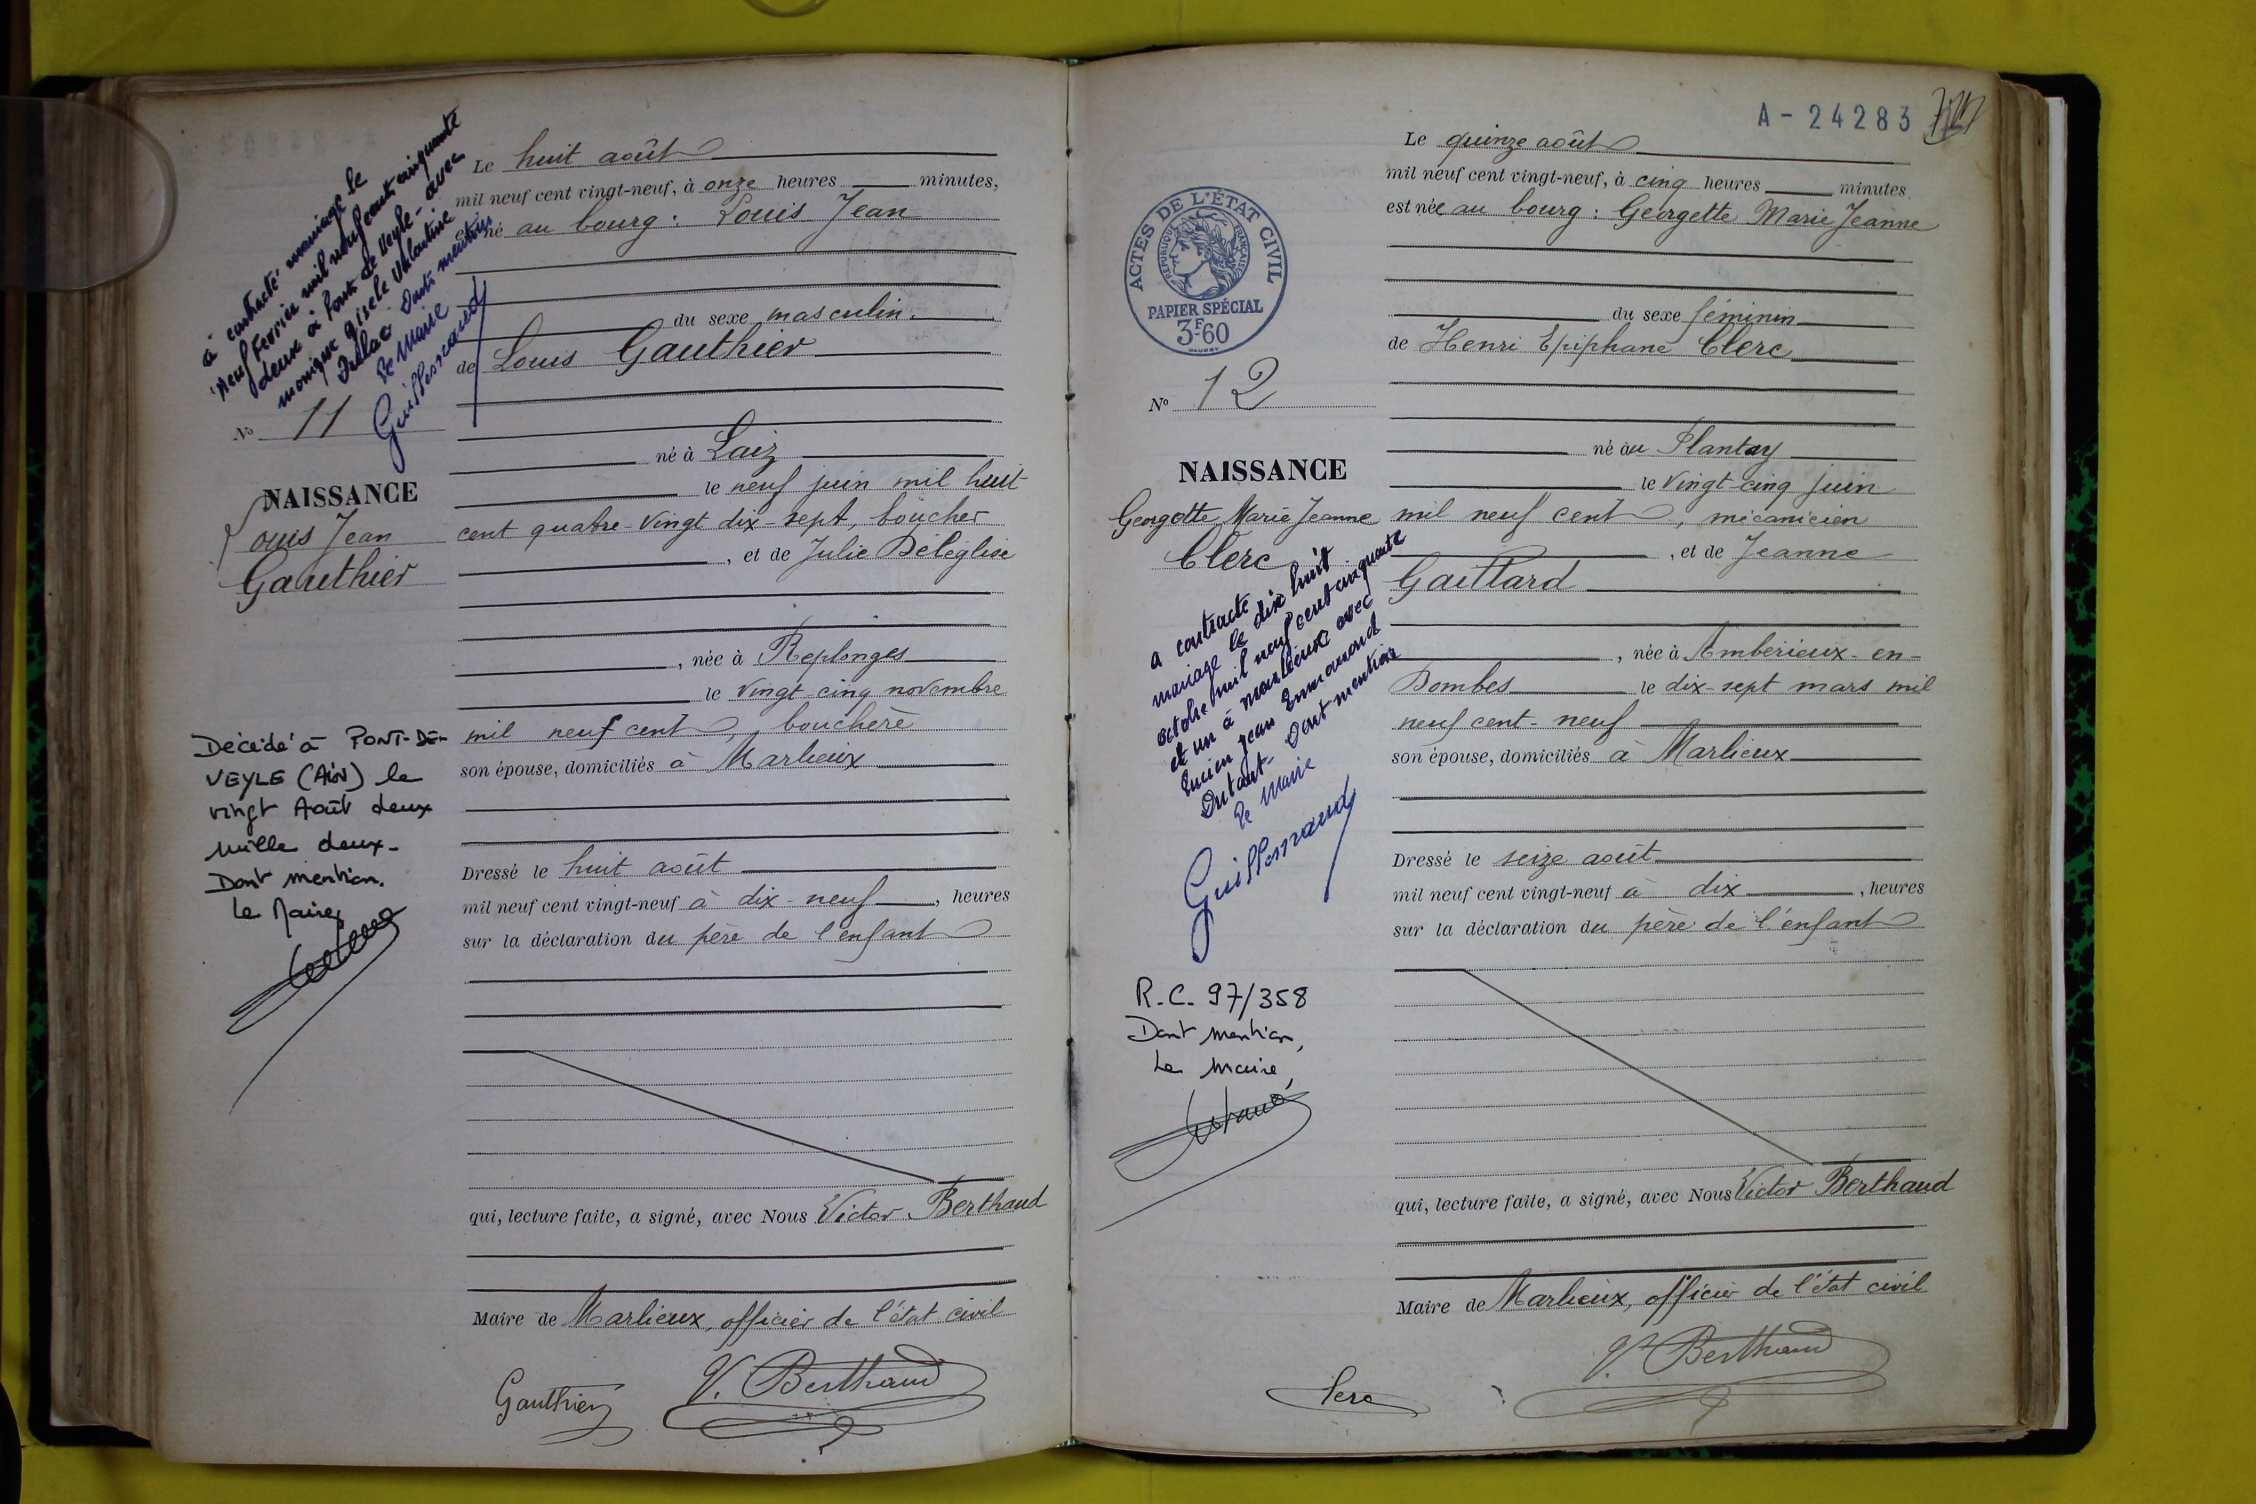 à contracté mariage le
neuf Fevrier mil neuf cent cinquante
deux à Pont de Veyle - avec
monique Gisele Valentine
Dont mention
Le Maire
Guillermaud
N° 11
NAISSANCE
Louis Jean
Gauthier
Décédé à PONT-DE-
VEYLE (AIN) le
vingt Août deux
mille deux-
Dont mention.
Le Maire,
Le huit août
mil neuf cent vingt-neuf, à onze heures minutes,
est né au bourg : Louis Jean
du sexe masculin.
de Louis Gauthier
né à Laiz
le neuf juin mil huit
cent quatre-vingt dix-sept, boucher
, et de Julie Déléglise
, née à Replonges
le vingt-cinq novembre
mil neuf cent, bouchère
son épouse, domiciliés à Marlieux
Dressé le huit août
mil neuf cent vingt-neuf à dix-neuf, heures
sur la déclaration du père de l'enfant
qui, lecture faite, a signé, avec Nous Victor Berthaud
Maire de Marlieux, officier de l'état civil
Gauthier
V. Berthaud
A - 24283
ACTES DE L'ÉTAT CIVIL
RÉPUBLIQUE FRANÇAISE
PAPIER SPÉCIAL
3F-60
N° 12
NAISSANCE
Georgette Marie Jeanne
Clerc
a contracté
mariage le dix huit
octobre mil neuf cent cinquante
et un à marlieux avec
Lucien Jean Emmanuel
Dutant - Dont mention
Le Maire
Guillermaud
R.C. 97/358
Dont mention,
Le Maire,
Le quinze août
mil neuf cent vingt-neuf, à cinq heures minutes
est née au bourg : Georgette Marie Jeanne
du sexe féminin
de Henri Epiphane Clerc
né au Plantay
le vingt-cinq juin
mil neuf cent, mécanicien
, et de Jeanne
Gaillard
, née à Ambérieux-en-
Dombes le dix-sept mars mil
neuf cent-neuf
son épouse, domiciliés à Marlieux
Dressé le seize août
mil neuf cent vingt-neuf à dix, heures
sur la déclaration du père de l'enfant
qui, lecture faite, a signé, avec Nous Victor Berthaud
Maire de Marlieux, officier de l'état civil
Clerc
V. Berthaud